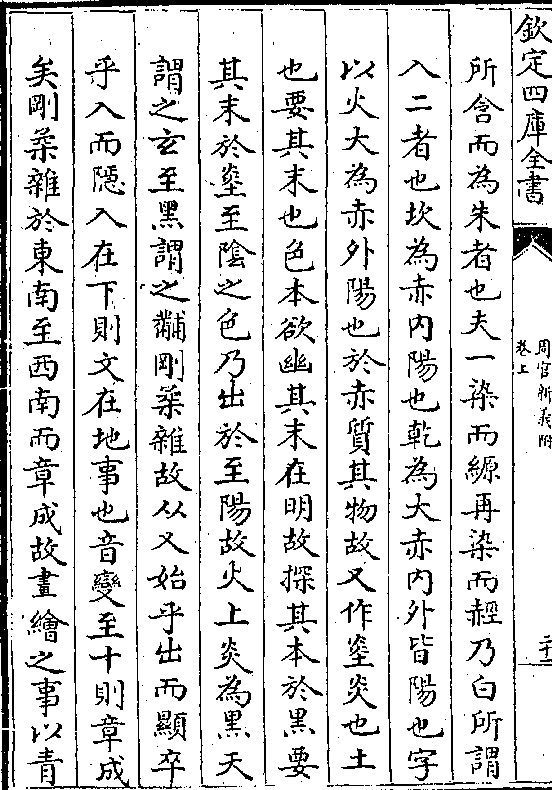 欽定四庫全書
周官新義附
卷上
所含而為朱者也夫一染而縓再染而䞓乃白所謂
入二者也坎為赤内陽也乾為大赤内外皆陽也字
以火大為赤外陽也於赤質其物故又作烾炎也土
也要其末也色本欲幽其末在明故探其本於黒要
其末於烾至陰之色乃出於至陽故火上炎為黒天
謂之玄至黒謂之黼剛柔雜故从乂始乎出而顯卒
乎入而隱入在下則文在地事也音變至十則章成
矣剛柔雜於東南至西南而章成故畫繪之事以青